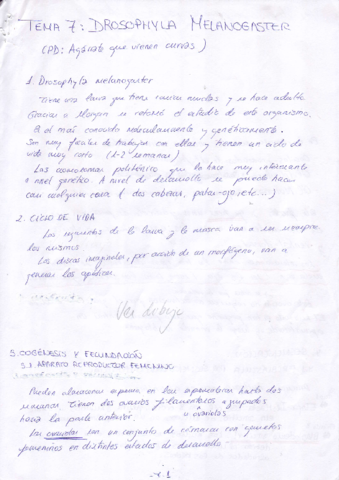 TEMA 7: DROSOPHYLA MELANOGASTER
(PD: Agárrate que vienen curvas)
1. Drosophyla melanogaster
Tiene una larva que tiene varias mudas y se hace adulta.
Gracias a Morgan se retomó el estudio de este organismo.
Es el más conocido molecularmente y genéticamente.
Son muy fáciles de trabajar con ellas y tienen un ciclo de
vida muy corto (1-2 semanas)
Los cromosomas politénicos que lo hace muy interesante
a nivel genético. A nivel de desarrollo se puede hacer
casi cualquier cosa (dos cabezas, patas-ojo, etc...)
2. CICLO DE VIDA
Los segmentos de la larva y la mosca van a ser siempre
los mismos
Los discos imaginales, por acción de un morfógeno, van a
generar los apéndices.
Ver dibujo
5. OOGÉNESIS Y FECUNDACIÓN
5.1. APARATO REPRODUCTOR FEMENINO
Pueden almacenar esperma en las espermatecas hasta dos
semanas. Tienen dos ovarios filamentosos agrupados
hacia la parte anterior. u ovariolas
Los son un conjunto de cámaras con gametos
femeninos en distintos estados de desarrollo
1